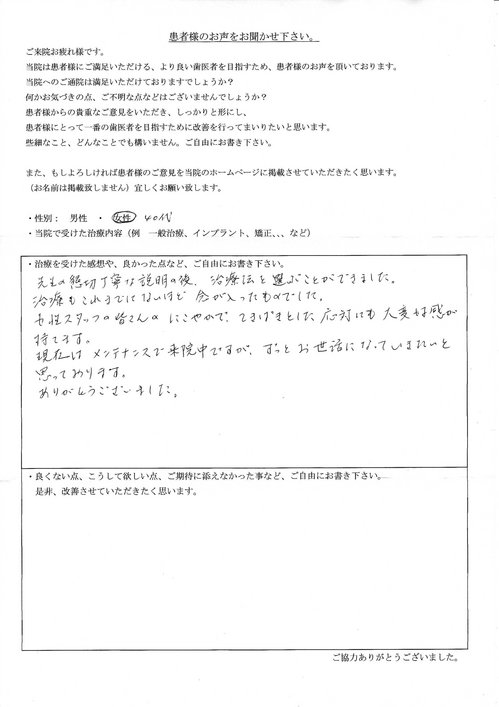 患者様のお声をお聞かせ下さい。
ご来院お疲れ様です。
当院は患者様にご満足いただける、より良い歯医者を目指すため、患者様のお声を頂いております。
当院へのご通院は満足いただけておりますでしょうか？
何かお気づきの点、ご不明な点などはございませんでしょうか？
患者様からの貴重なご意見をいただき、しっかりと形にし、
患者様にとって一番の歯医者を目指すために改善を行ってまいりたいと思います。
些細なこと、どんなことでも構いません。ご自由にお書き下さい。
また、もしよろしければ患者様のご意見を当院のホームページに掲載させていただきたく思います。
（お名前は掲載致しません）宜しくお願い致します。
・性別： 男性 ・ 女性 40代
・当院で受けた治療内容（例 一般治療、インプラント、矯正、、、など）
・治療を受けた感想や、良かった点など、ご自由にお書き下さい。
先生の親切丁寧な説明の後、治療法を選ぶことができました。
治療もこれまでにないほど念が入ったものでした。
女性スタッフの皆さんのにこやかで、てきぱきとした応対にも大変好感が
持てます。
現在はメンテナンスで来院中ですが、ずっとお世話になっていきたいと
思っております。
ありがとうございました。
・良くない点、こうして欲しい点、ご期待に添えなかった事など、ご自由にお書き下さい。
是非、改善させていただきたく思います。
ご協力ありがとうございました。